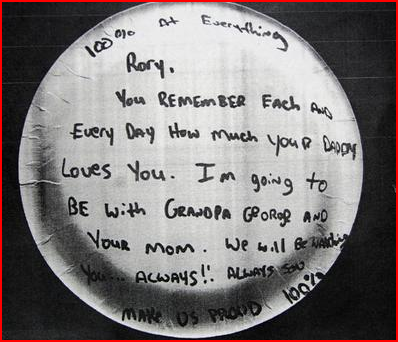 100% At Everything
Rory,
You REMEMBER Each AND
Every Day How much YOUR DADDY
Loves You. I'm going to
BE with GRANDPA GEORGE AND
YOUR MOM. We will Be watching
You... ALWAYS!! ALWAYS
100%
MAKE US PROUD